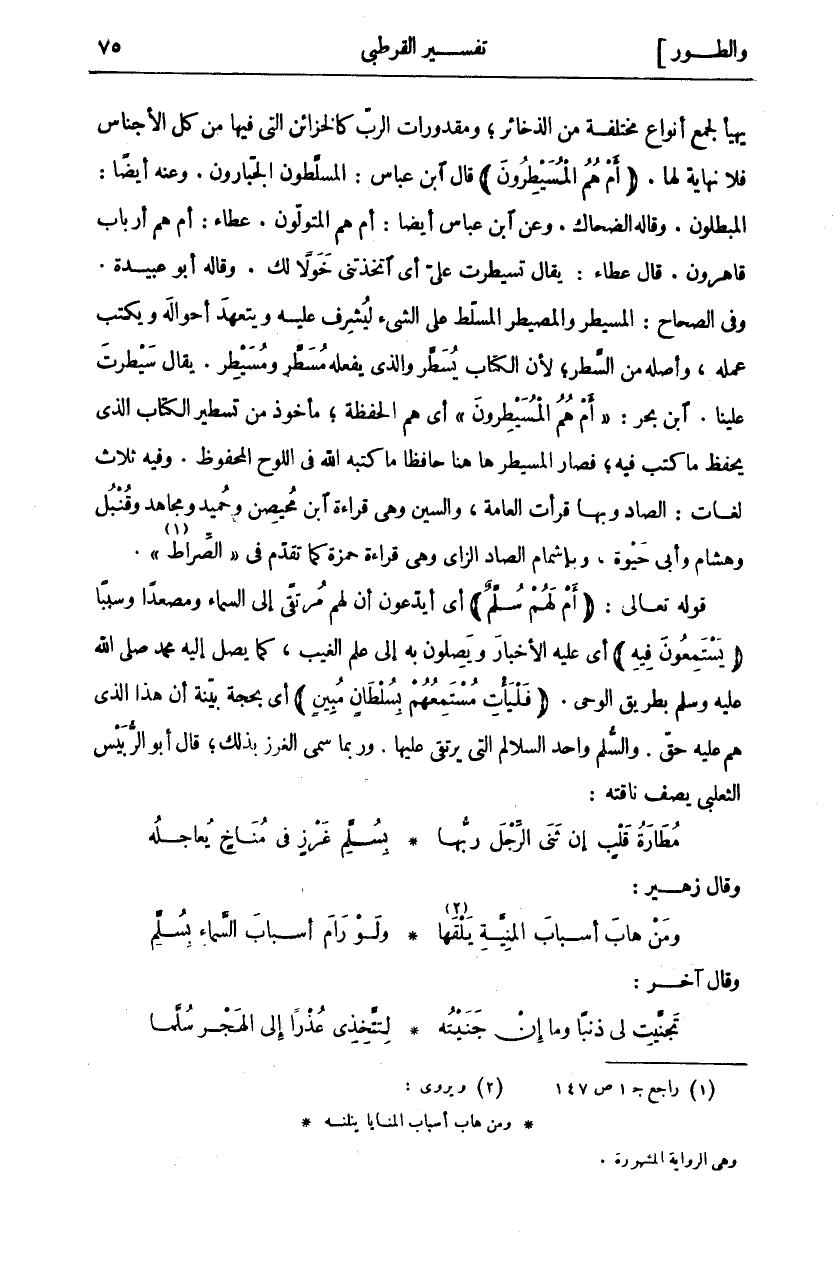 والطـــور ]
تفســـير القرطبى
٧٥
يهيأ لجمع أنواع مختلفة من الذخائر ؛ ومقدورات الربّ كالخزائن التى فيها من كل الأجناس
فلا نهاية لها . ﴿ أَمْ هُمُ الْمُسَيْطِرُونَ ﴾ قال ٱبن عباس : المسلَّطون الجبّارون . وعنه أيضًا :
المبطلون . وقاله الضحاك . وعن ٱبن عباس أيضا : أم هم المتولّون . عطاء : أم هم أرباب
قاهرون . قال عطاء : يقال تسيطرت علىّ أى ٱتخذتنى خَوَلًا لك . وقاله أبو عبيـدة .
وفى الصحاح : المسيطر والمصيطر المسلّط على الشىء ليُشرِف عليـه ويتعهدَ أحوالَه ويكتب
عمله ، وأصله من السَّطر ؛ لأن الكتاب يُسَطَّر والذى يفعله مُسَطِّر ومُسَيْطِر . يقال سَيْطرتَ
علينا . ٱبن بحر : « أَمْ هُمُ الْمُسَيْطِرونَ » أى هم الحفظة ؛ مأخوذ من تسطير الكتاب الذى
يحفظ ما كتب فيه ؛ فصار المسيطر ها هنا حافظا ما كتبه الله فى اللوح المحفوظ . وفيه ثلاث
لغـات : الصاد وبهـا قرأت العامة ، والسين وهى قراءة ٱبن مُحيصِن وحُميد ومجاهد وقُنْبُل
وهشام وأبى حَيْوة ، وبإشمام الصاد الزاى وهى قراءة حمزة كما تقدّم فى « الصِّراط (١) » .
قوله تعـالى : ﴿ أَمْ لَهُـمْ سُـلَّمٌ ﴾ أى أيدّعون أن لهم مُرتقًى إلى السماء ومصعدًا وسببًا
﴿ يَسْتَمِعُونَ فِيهِ ﴾ أى عليه الأخبارَ ويَصِلون به إلى علم الغيب ، كما يصل إليه محمد صلى الله
عليه وسلم بطريق الوحى . ﴿ فَلْيَأْتِ مُسْتَمِعُهُمْ بِسُلْطَانٍ مُبِينٍ ﴾ أى بحجة بيّنة أن هذا الذى
هم عليه حقّ . والسُّلم واحد السلالم التى يرتقى عليها . وربما سمى الغرز بذلك ؛ قال أبو الرُّبَيْس
الثعلبى يصف ناقته :
مُطَارَةُ قَلْبٍ إن ثَنَى الرِّجْلَ ربُّهـا * بِسُـلَّمِ غَرْزٍ فى مُنَـاخٍ يُعاجـلُه
وقال زهـــير :
ومَنْ هابَ أسـبابَ المنِيَّـةِ يَلْقَها (٢) * ولَـوْ رَامَ أسـبابَ السَّماءِ بِسُـلَّمِ
وقال آخـــر :
تَجَنَّيتِ لى ذنبًا وما إنْ جَنَيْتُه * لِتَتَّخِذِى عُذْرًا إلى الهَجْـرِ سُلَّمـا
(١) راجع جـ ١ ص ١٤٧ (٢) ويروى :
* ومن هاب أسباب المنـايا ينلنـه *
وهى الرواية المشهورة .